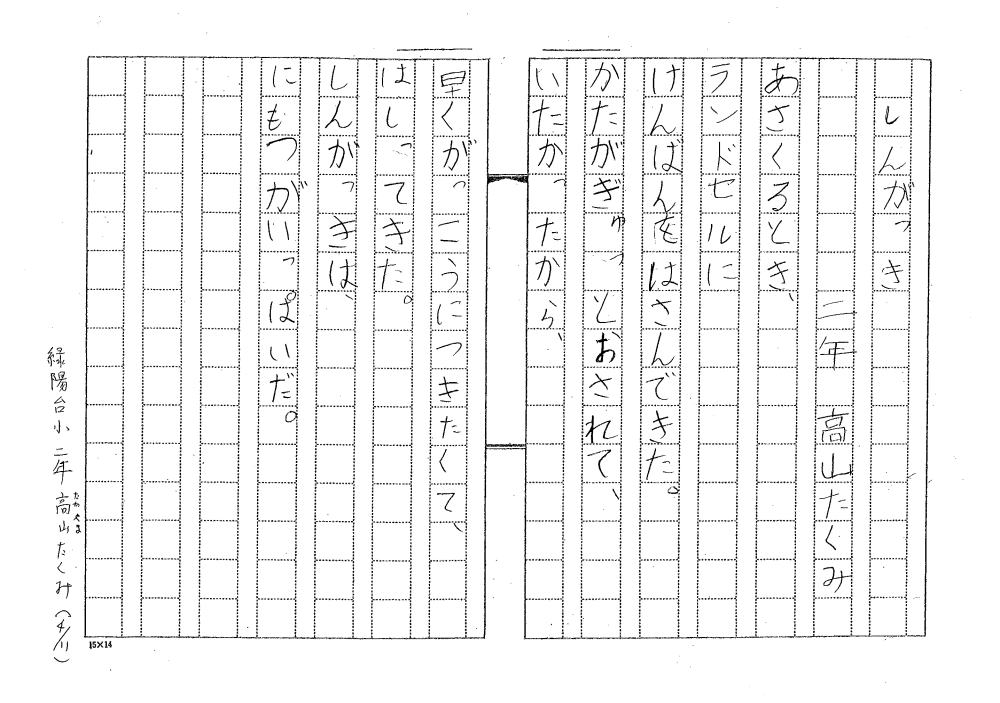 しんがっき
二年 高山たくみ
あさくるとき、
ランドセルに
けんばんをはさんできた。
かたがぎゅっとおされて、
いたかったから、
早くがっこうにつきたくて、
はしってきた。
しんがっきは、
にもつがいっぱいだ。
15×14
緑陽台小 二年 高山たくみ(4/11)
たかやま